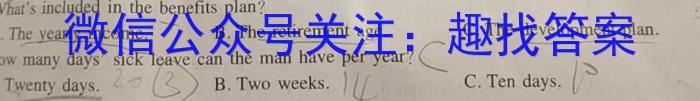 What's included in the benefits plan?
The year income. B. The retirement age. C. The development plan.
微信公众号关注：趣找答案
ow many days' sick leave can the man have per year? C
Twenty days. 20 (3) B. Two weeks. 14 C. Ten days. 10